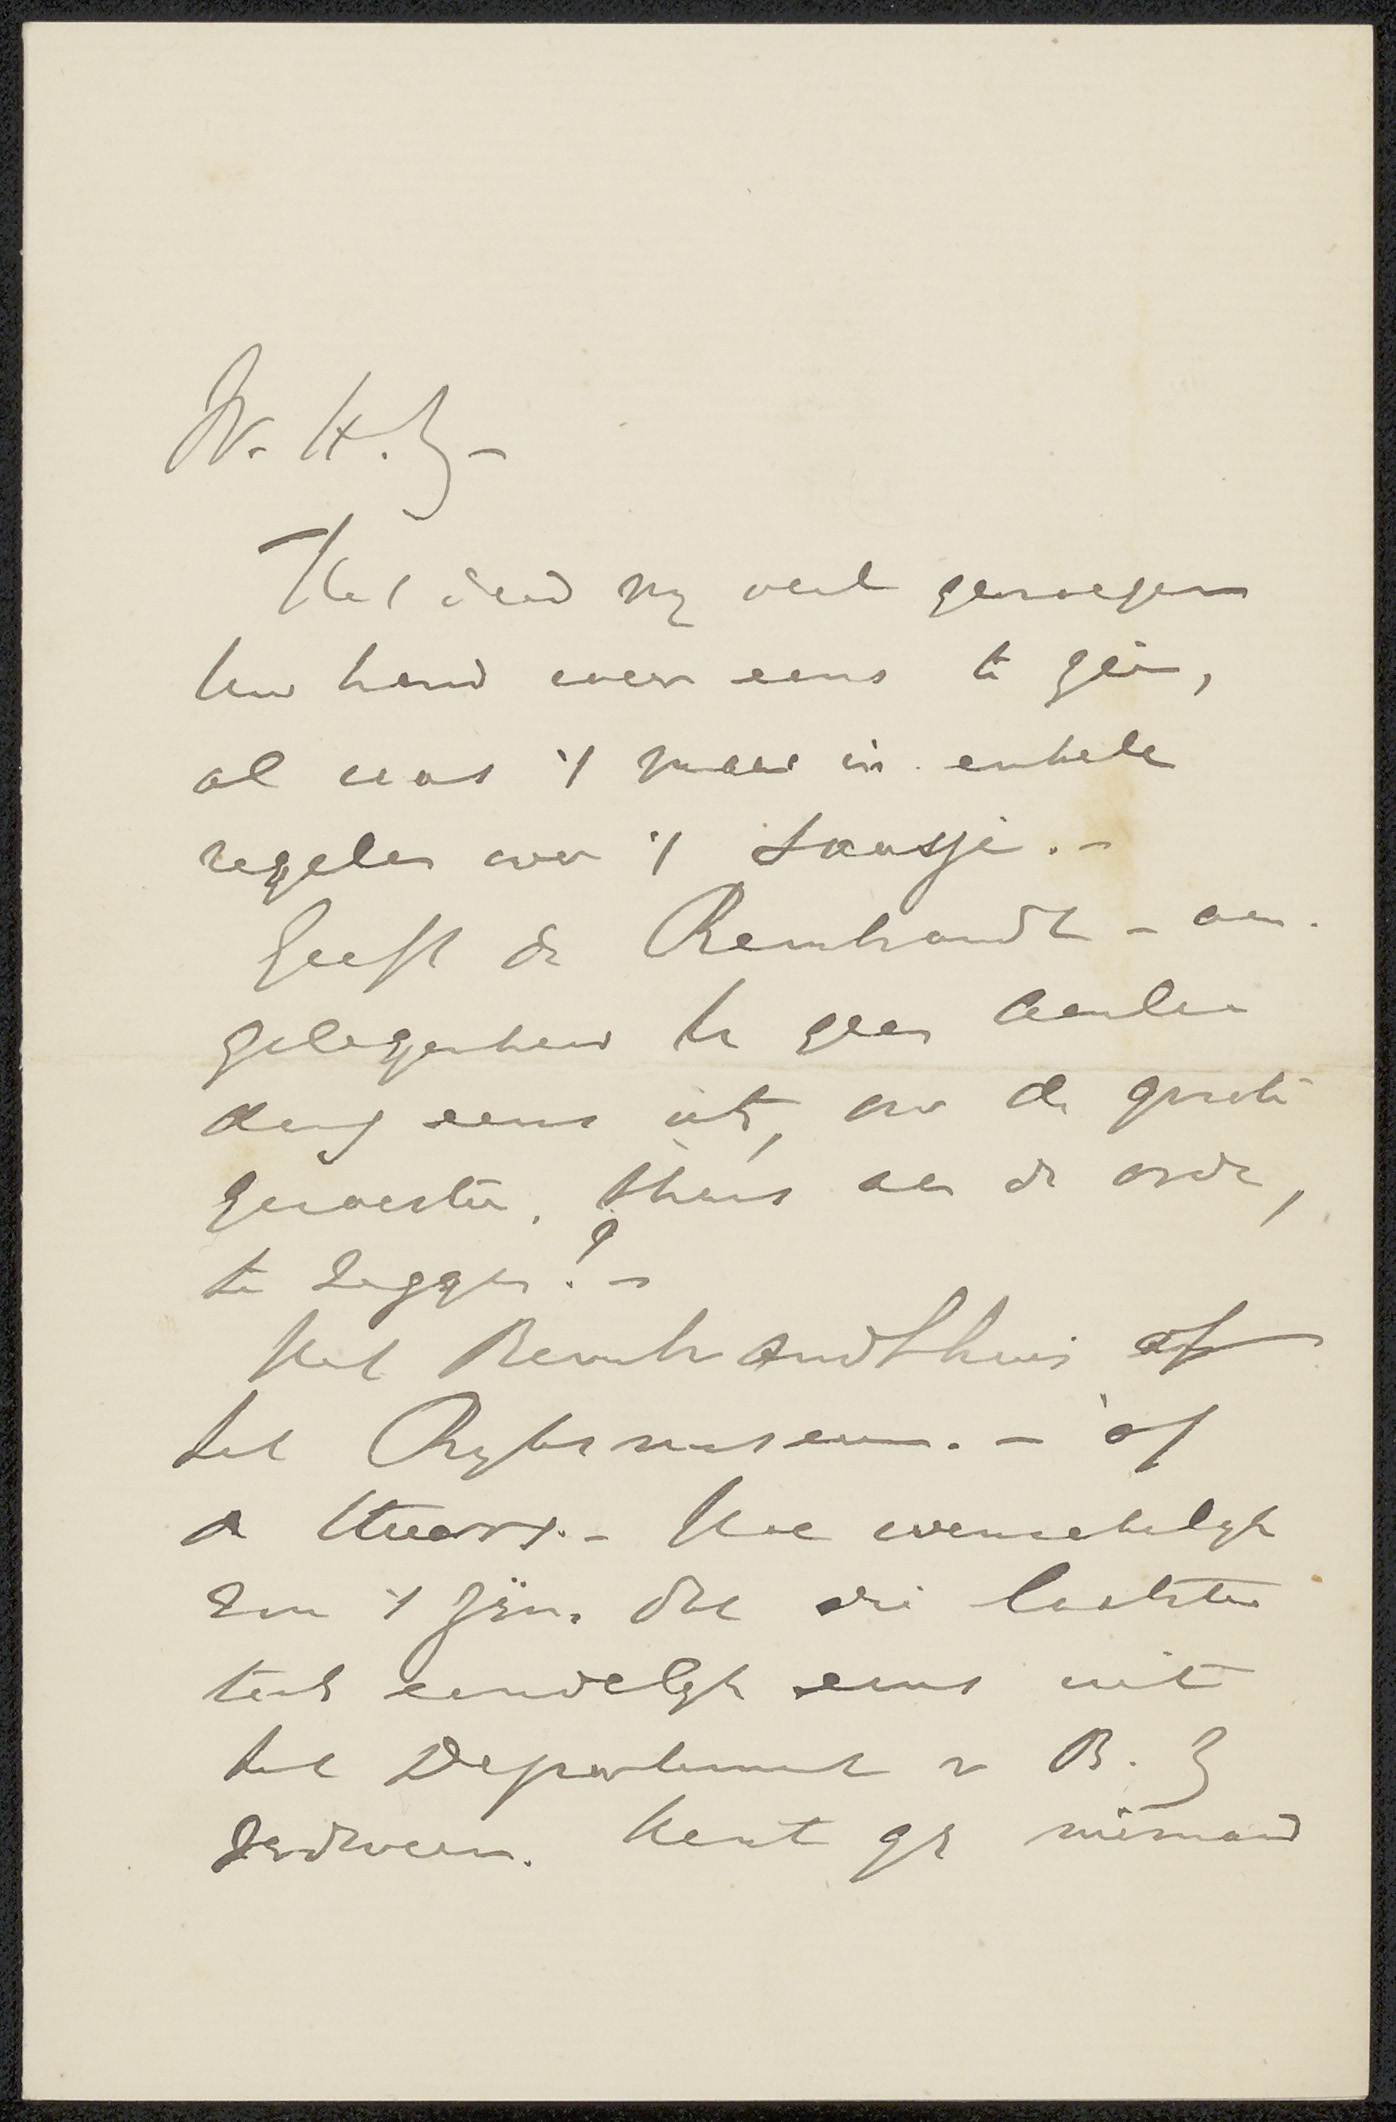 W. H. Z. –
Het deed my veel genoegen
Uw hand weer eens te zien,
al was 't maar in enkele
regelen over 't
Geeft de Rembrandt – aan.
gelegenheid U geen
eens uit, over de groote
, thans aan de orde,
te zeggen? –
Het Rembrandthuis of
het Ryksmuseum. – of
de . – Hoe wenschelyk
zou 't zyn. dat die laatste
toch eindelyk eens uit
het Departement v B. Z
verdween. Kent gy niemand